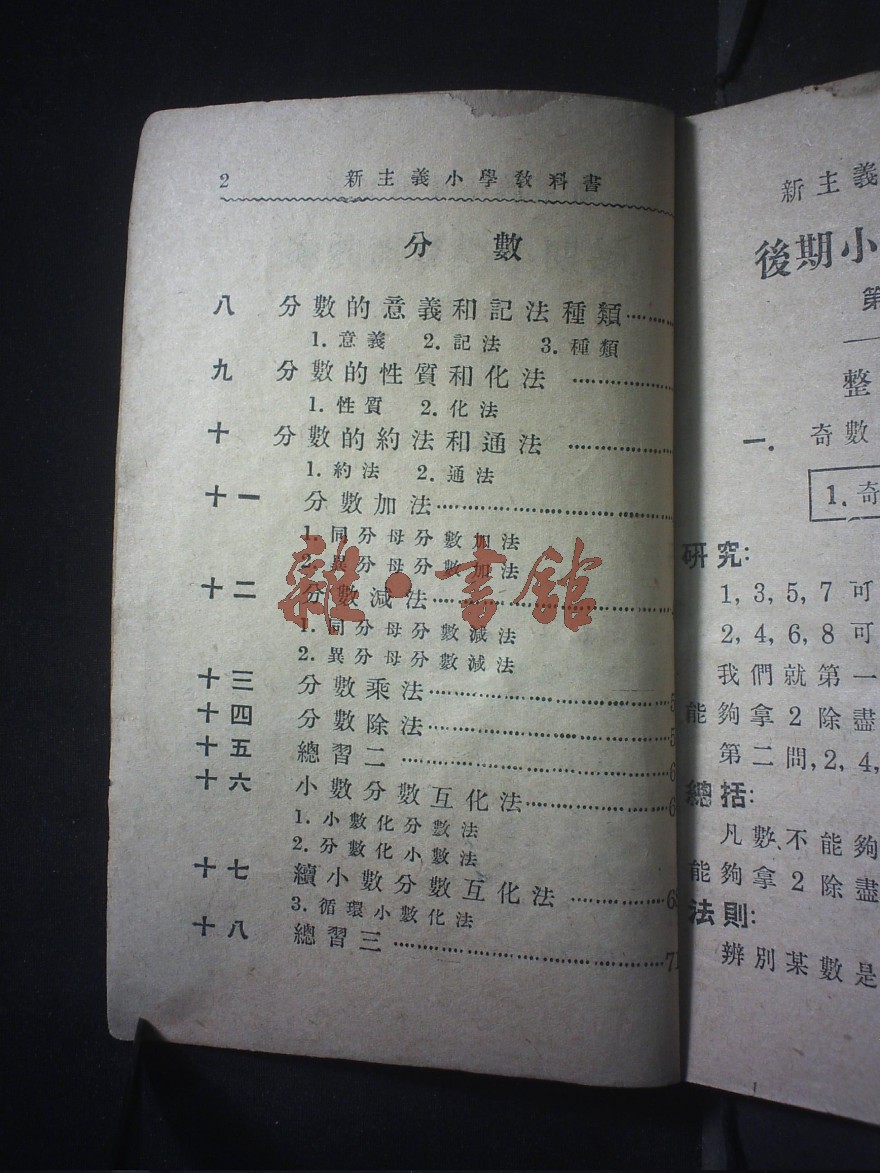 2 新主義小學教科書
分數
八 分數的意義和記法種類
1. 意義 2. 記法 3. 種類
九 分數的性質和化法
1. 性質 2. 化法
十 分數的約法和通法
1. 約法 2. 通法
十一 分數加法
1. 同分母分數加法
2. 異分母分數加法
十二 分數減法
1. 同分母分數減法
2. 異分母分數減法
十三 分數乘法 5
十四 分數除法 5
十五 總習二 6
十六 小數分數互化法 6
1. 小數化分數法
2. 分數化小數法
十七 續小數分數互化法 6
3. 循環小數化法
十八 總習三 7
雜·書館
新主義
後期小
第
整
一. 奇數
1. 奇
研究:
1, 3, 5, 7 可
2, 4, 6, 8 可
我們就第一
能夠拿2除盡
第二問, 2, 4,
總括:
凡數、不能夠
能夠拿2除盡
法則:
辨別某數是